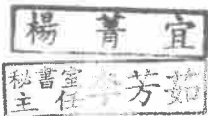 楊菁宜
秘書室
主任 李芳茹